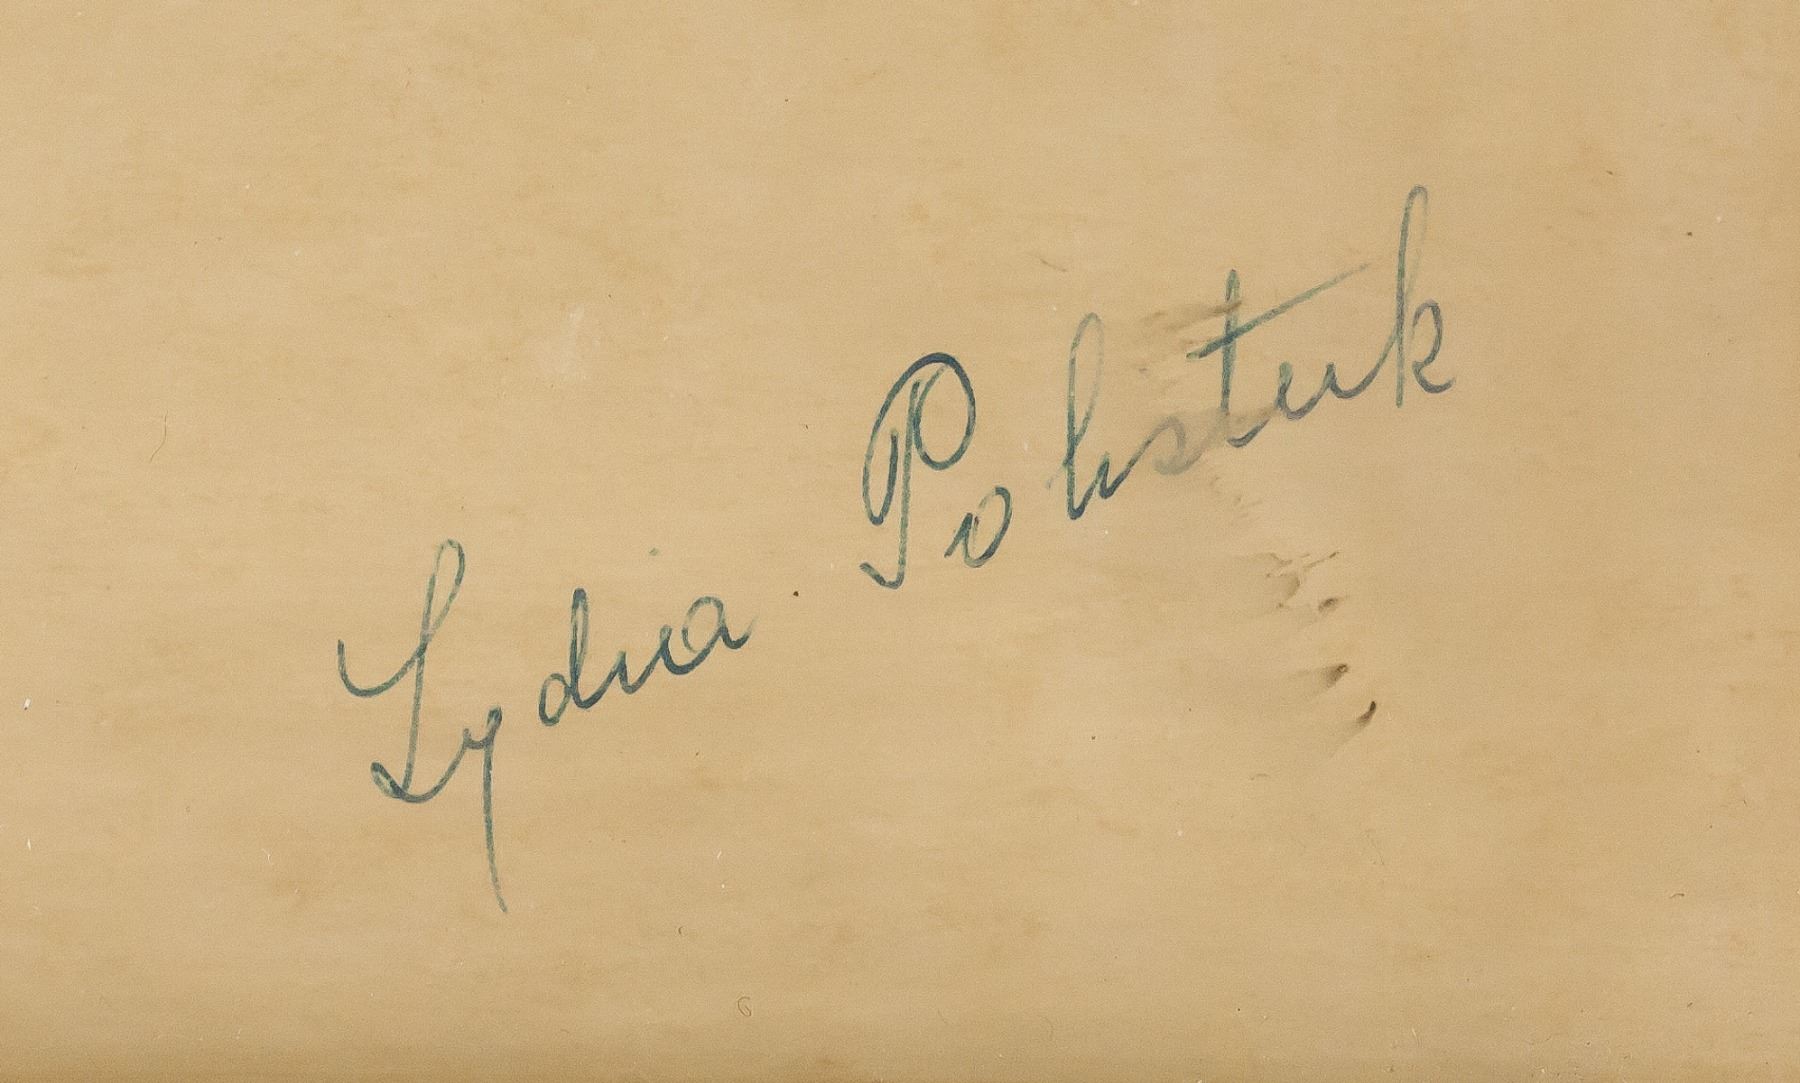 Lydia Pohstuk